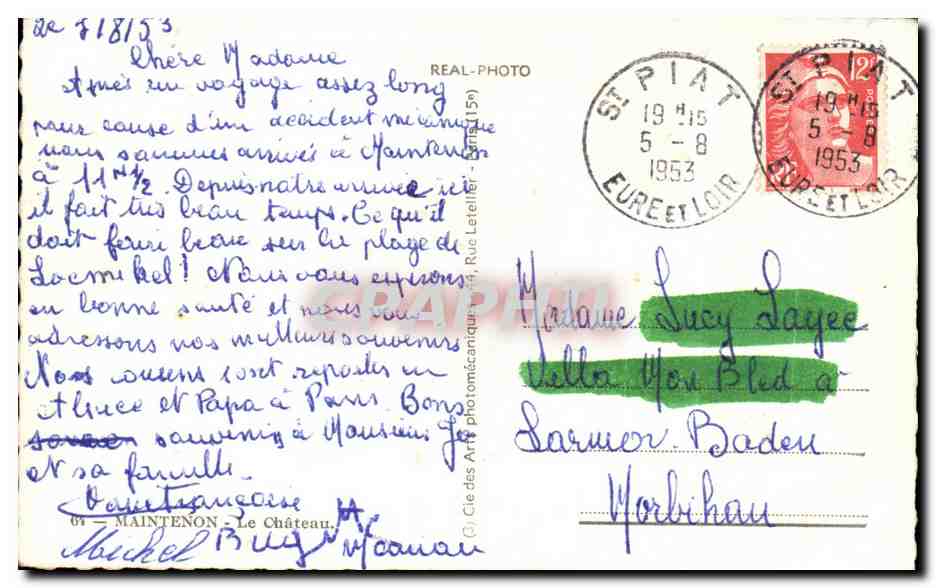 Le 7/8/53
Chère Madame
Après un voyage assez long
pour cause d'un accident mécanique
nous sommes arrivés à Maintenon
à 11H1/2. Depuis notre arrivée ici
il fait très beau temps. Ce qu'il
doit faire beau sur la plage de
Locmikel! Nous vous espérons
en bonne santé et nous vous
adressons nos meilleurs souvenirs
Nos cousins sont repartis en
et Papa à Paris. Bons
souvenirs à Monsieur
et sa famille.
Françoise
64 — MAINTENON - Le Château.
Michel
REAL-PHOTO
(3) Cie des Arts photomécaniques, 44, Rue Letellier - Paris (15e)
ST PIAT
19 H 15
5 - 8
1953
EURE ET LOIR
ST PIAT
19 H 15
5 - 8
1953
EURE ET LOIR
12F
CPAPHIL
Madame Lucy Layec
Villa Mon Bled à
Larmor-Baden
Morbihan